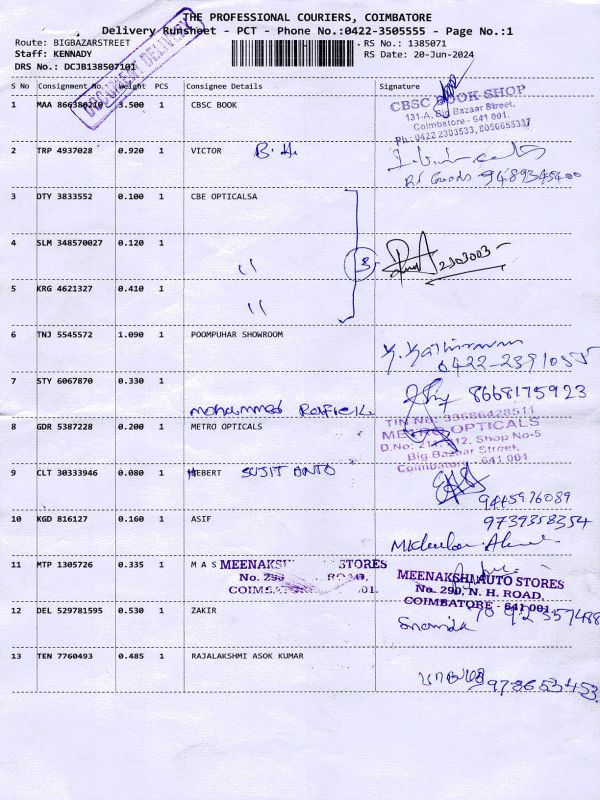 THE PROFESSIONAL COURIERS, COIMBATORE
Delivery Runsheet - PCT - Phone No.:0422-3505555 - Page No.:1
Route: BIGBAZARSTREET RS No.: 1385071
Staff: KENNADY RS Date: 20-Jun-2024
DRS No.: DCJB138507101
DOCUMENT DELIVERY
S No Consignment No. Weight PCS Consignee Details Signature
1 MAA 866386210 3.500 1 CBSC BOOK
CBSC BOOK SHOP
131-A, Big Bazaar Street,
Coimbatore - 641 001.
Ph: 0422 2303533, 8056655337
2 TRP 4937028 0.920 1 VICTOR B.H.
Rs Goods 9489345400
3 DTY 3833552 0.100 1 CBE OPTICALSA
4 SLM 348570027 0.120 1 〃 3 2303003
5 KRG 4621327 0.410 1 〃
6 TNJ 5545572 1.090 1 POOMPUHAR SHOWROOM
0422-2391055
7 STY 6067870 0.330 1 8668175923
Mohammed Rafiek
TIN No: 33686428511
8 GDR 5387228 0.200 1 METRO OPTICALS
METRO OPTICALS
D.No: 211, 212, Shop No-5
Big Bazaar Street,
Coimbatore - 641 001
9 CLT 30333946 0.080 1 HEBERT SUJIT ANTO
9445976089
10 KGD 816127 0.160 1 ASIF 9739358354
11 MTP 1305726 0.335 1 M A S
MEENAKSHI STORES
No. 290 ROAD,
COIMBATORE
MEENAKSHI AUTO STORES
No. 290, N. H. ROAD,
COIMBATORE - 641 001.
12 DEL 529781595 0.530 1 ZAKIR
13 TEN 7760493 0.485 1 RAJALAKSHMI ASOK KUMAR